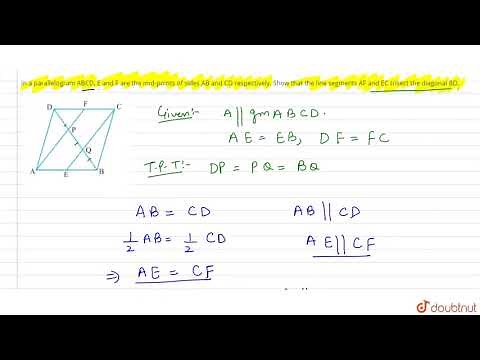 in a parallelogram ABCD, E and F are the mid-points of sides AB and CD respectively. Show that the line segments AF and EC trisect the diagonal BD.
D F C
P
Q
A E B
Given:- A || gm A B C D.
A E = E B, D F = F C
T.P.T:- DP = P Q = B Q
A B = C D
A B || C D
1/2 A B = 1/2 C D
A E || C F
⇒ A E = C F
doubtnut